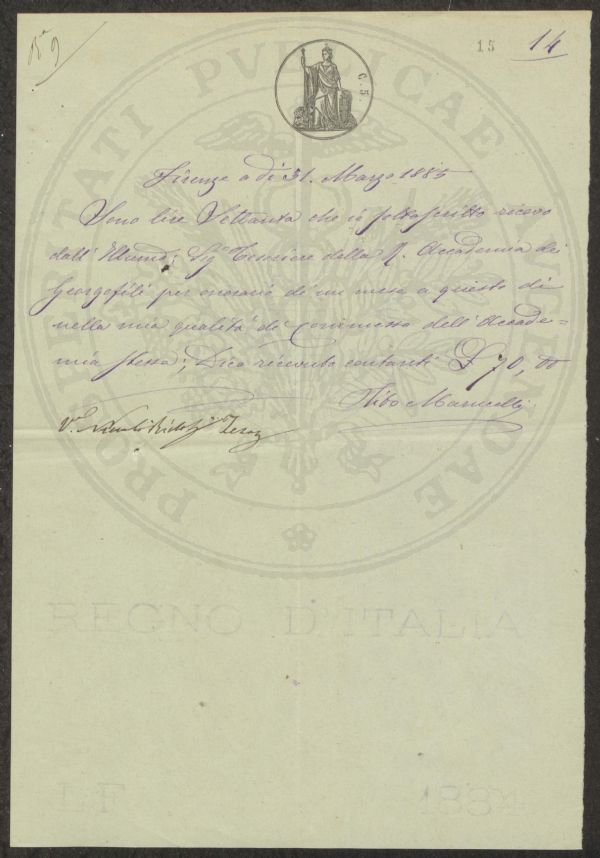 15
14
N° 9
C. 5.
PROSPERITATI PVBLICAE AVGENDAE
Firenze a dì 31. Marzo 1885
Sono lire Settanta che io sottoscritto ricevo
dall' Illumo. Sigr. Tesoriere della R. Accademia dei
Georgofili per onorario di un mese a questo dì
nella mia qualità di Commesso dell' Accade=
mia stessa; Dico ricevuto contanti £ 70, 00
Marucelli
V.
REGNO D'ITALIA
LF 1884